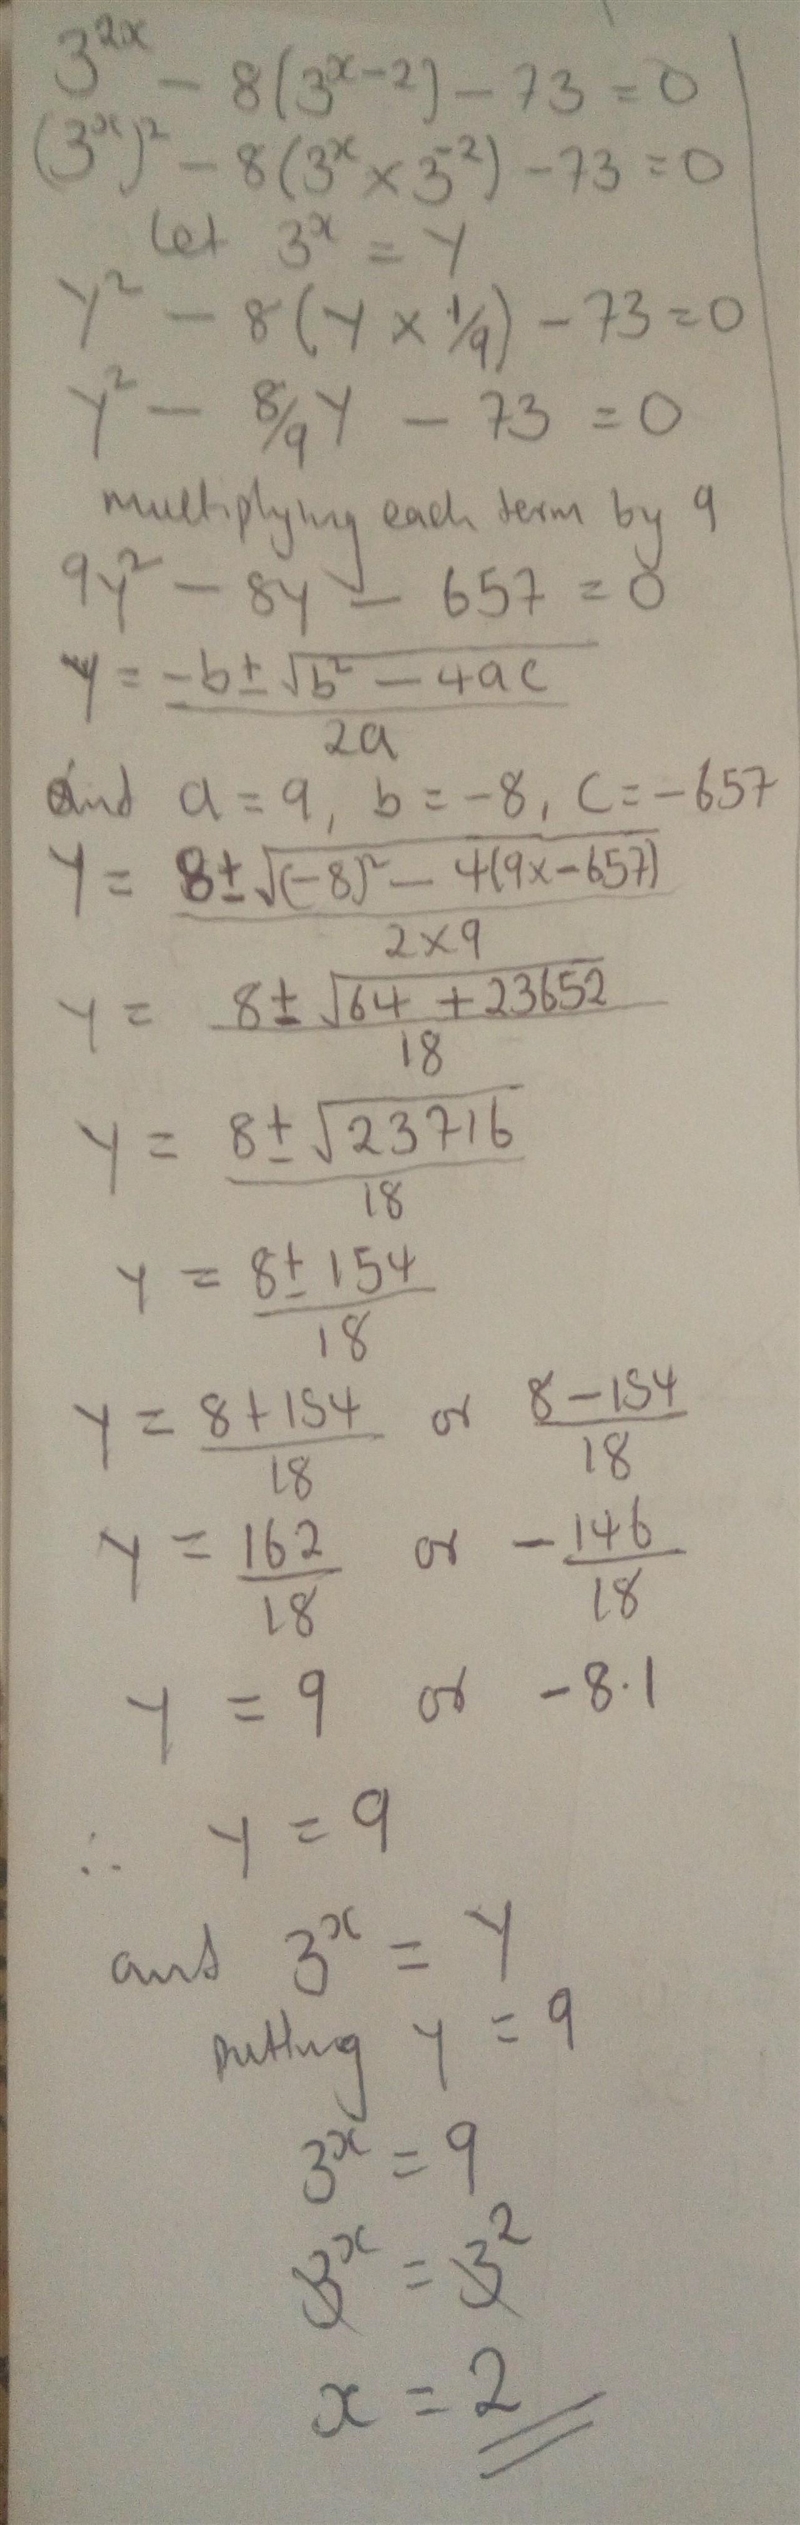 3^{2x} - 8(3^{x-2}) - 73 = 0
(3^x)^2 - 8(3^x × 3^{-2}) - 73 = 0
Let 3^x = Y
Y^2 - 8(Y × 1/9) - 73 = 0
Y^2 - 8/9 Y - 73 = 0
multiplying each term by 9
9Y^2 - 8Y - 657 = 0
Y = \frac{-b ± √(b^2 - 4ac)}{2a}
and a = 9, b = -8, c = -657
Y = \frac{8 ± √((-8)^2 - 4(9x-657))}{2×9}
Y = \frac{8 ± √(64 + 23652)}{18}
Y = \frac{8 ± √23716}{18}
Y = \frac{8 ± 154}{18}
Y = \frac{8+154}{18} or \frac{8-154}{18}
Y = \frac{162}{18} or -\frac{146}{18}
Y = 9 or -8.1
∴ Y = 9
and 3^x = Y
putting Y = 9
3^x = 9
3^x = 3^2
x = 2